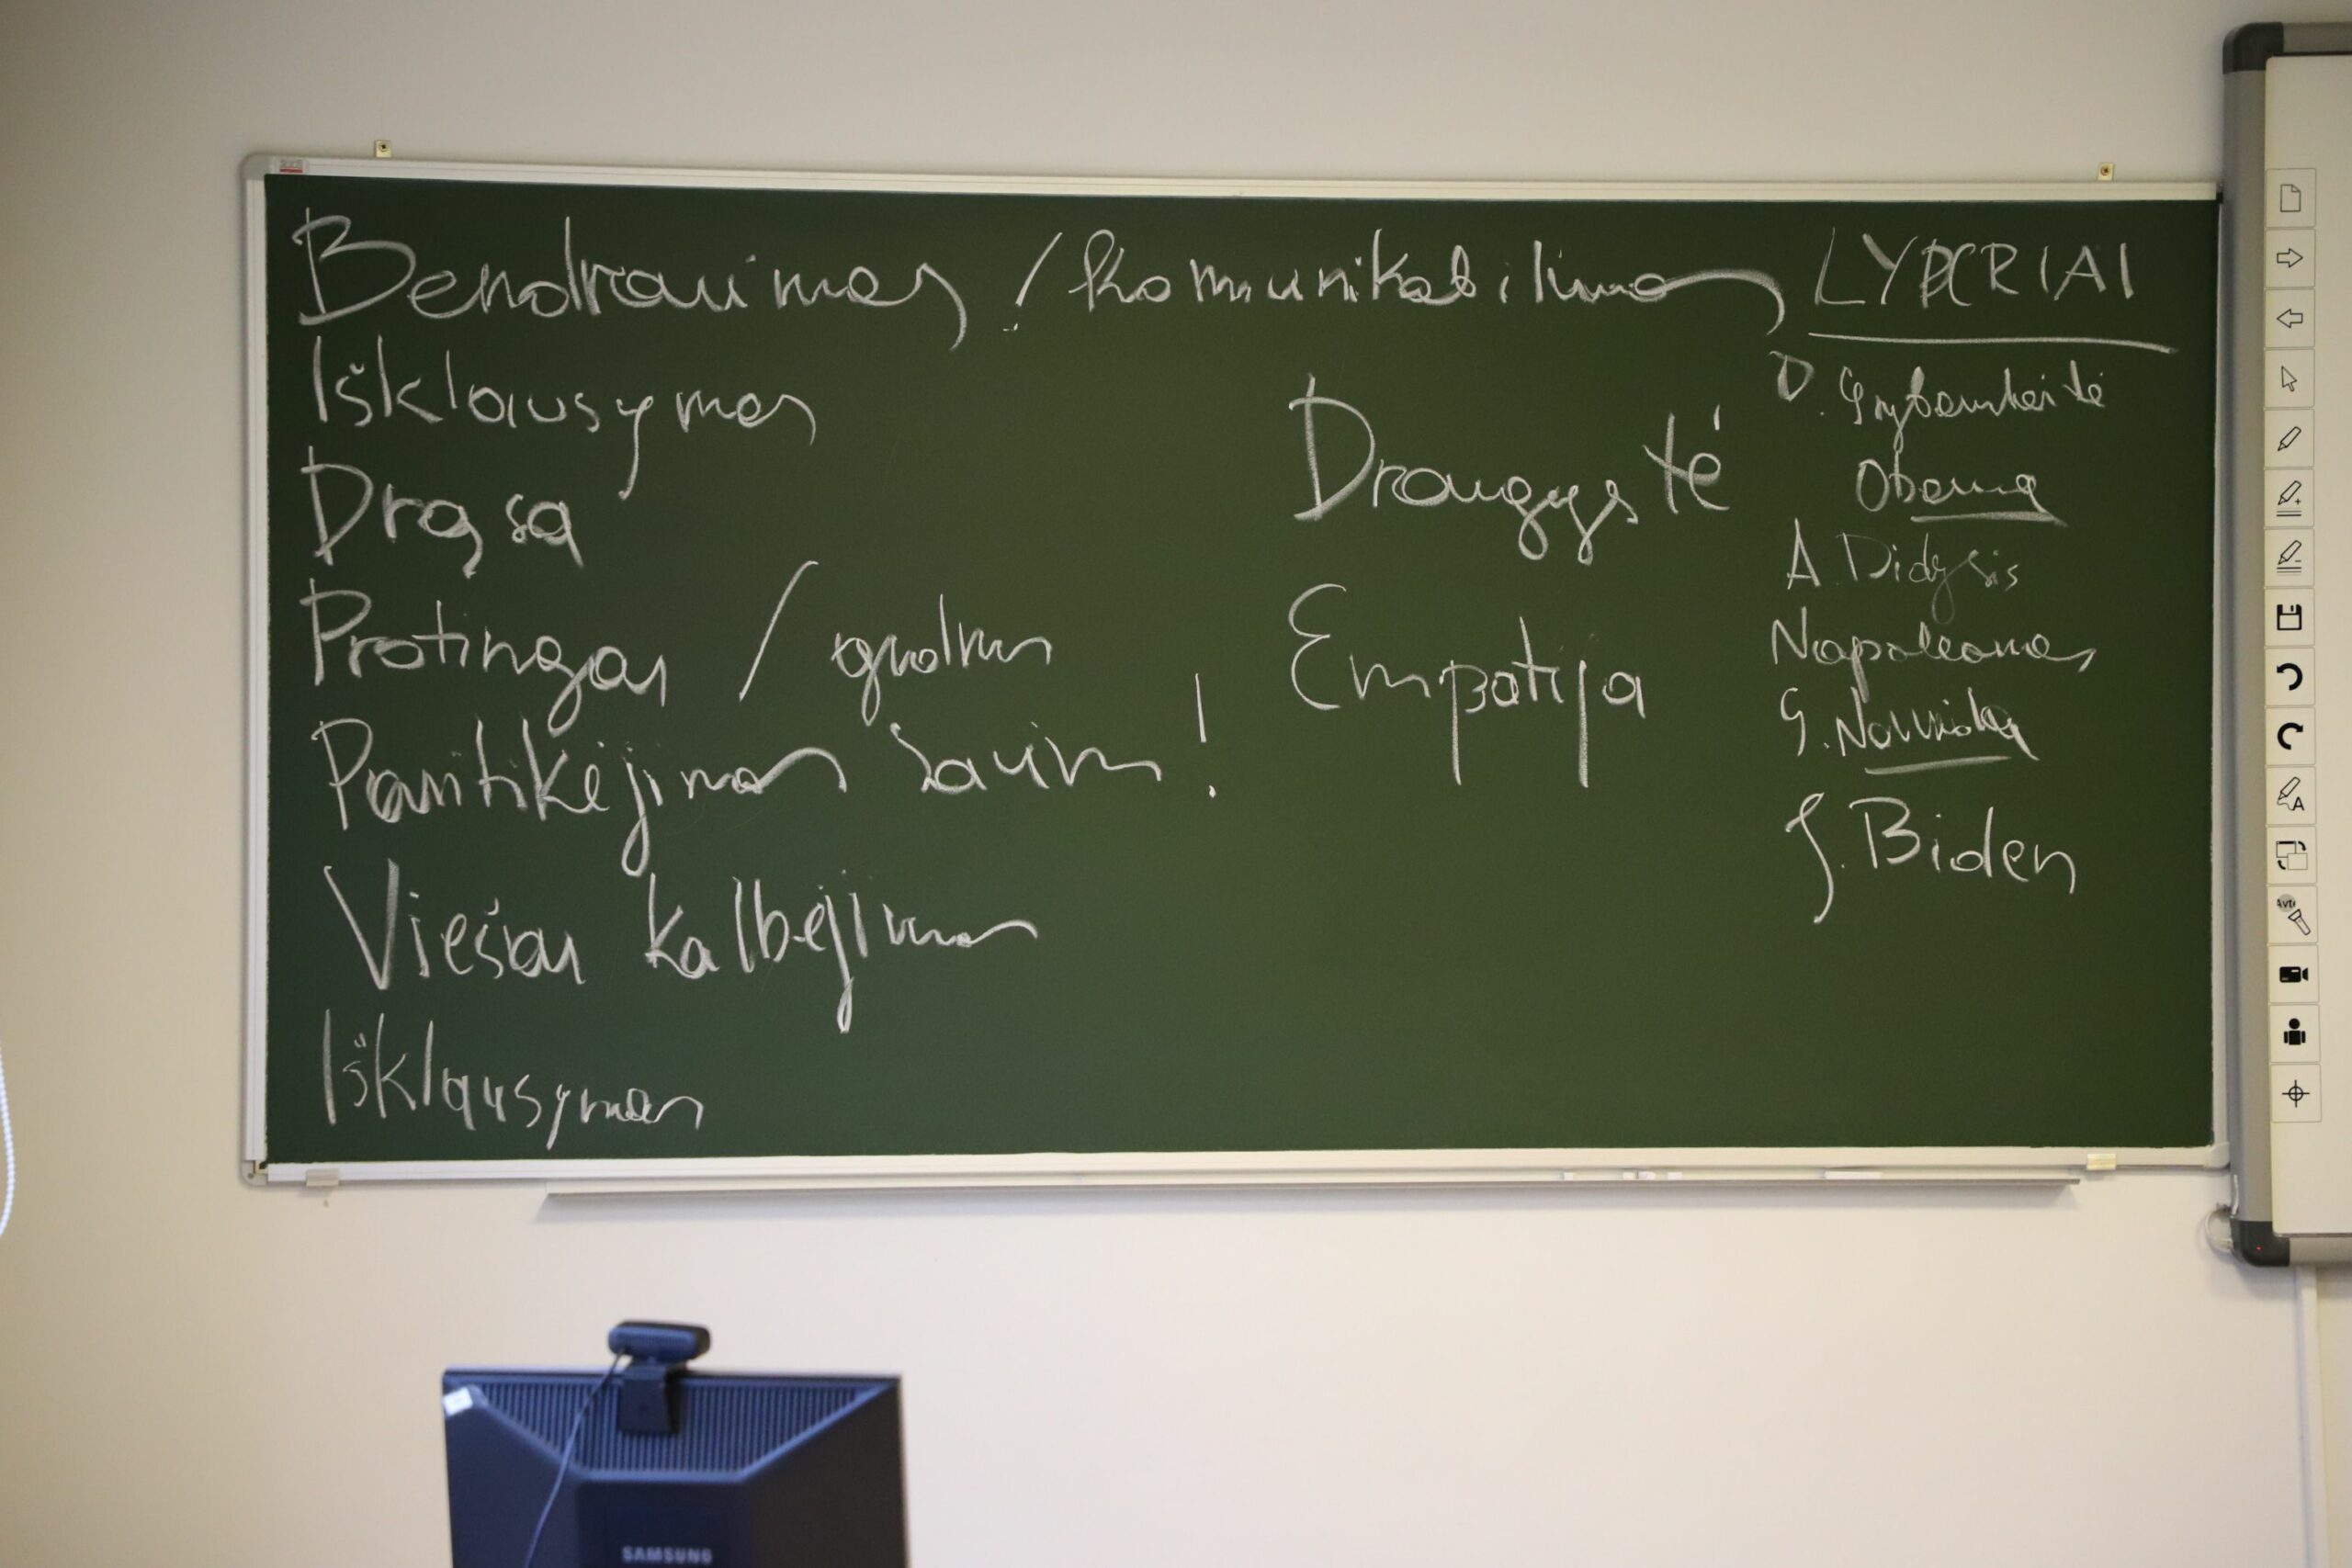 Bendravimas / komunikabilumas
Išklausymas
Drąsa
Protingas / gudrus
Pasitikėjimas savim!
Viešas kalbėjimas
Išklausymas
Draugystė
Empatija
LYDERIAI
D. Grybauskaitė
Obama
A. Didysis
Napoleonas
G. Nausėda
J. Biden
SAMSUNG